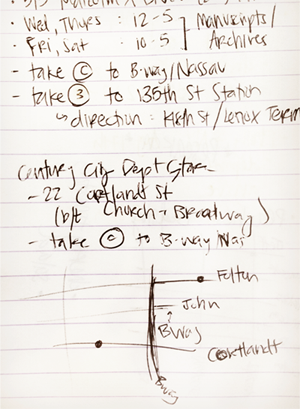 515 Malcolm X Blvd
• Wed, Thurs : 12-5
• Fri, Sat : 10-5
Manuscripts/
Archives
- take C to B-way/Nassau
- take 3 to 135th St Station
↳ direction : 148th St / Lenox Term
Century City Depot Store
- 22 Cortlandt St
(b/t Church + Broadway)
- take C to B-way/Nas
Fulton
John
↑
BWay
Cortlandt
Bway